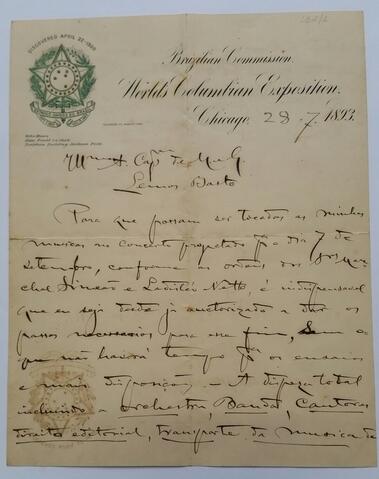 DISCOVERED APRIL 22-1500
Brazilian Commission.
World's Columbian Exposition.
Chicago, 28-7. 1893.
Illmo Sr Capm de M e G
Lemos Basto
Para que possam ser tocadas as minhas
musicas no concerto projetado pa o dia 7 de
setembro, conforme as ordens dos Srs Mare
chal Simeão e Ladisláo Netto, é indispensavel
que eu seja desde já auctorizado a dar os
passos necessarios para esse fim, sem o
que não haverá tempo pa os ensaios
e mais disposições — A despeza total
incluindo a orchestra, Bandas, Cantoras
direito editorial, transporte da musica de